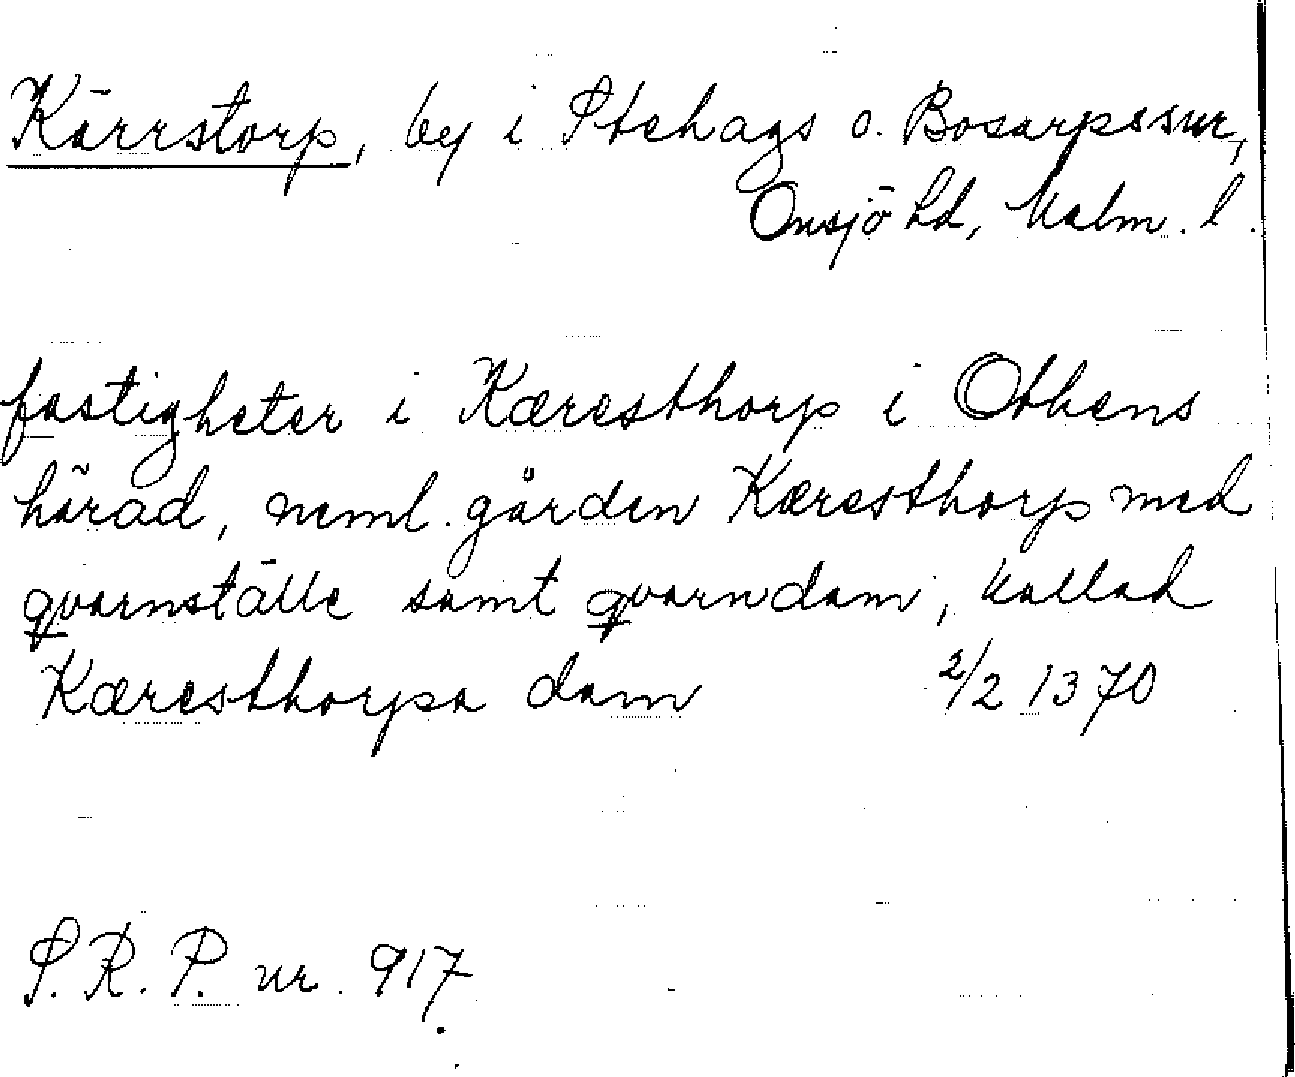 Kärrstorp, by i Stehags o. Bosarps snr,
Onsjö hd, Malm. l.
fastigheter i Kæresthorp i Othens
härad, neml. gården Kæresthorp med
qvarnställe samt qvarndam, kallad
Kæresthorpa dam 2/2 1370
S. R. P. nr. 917.